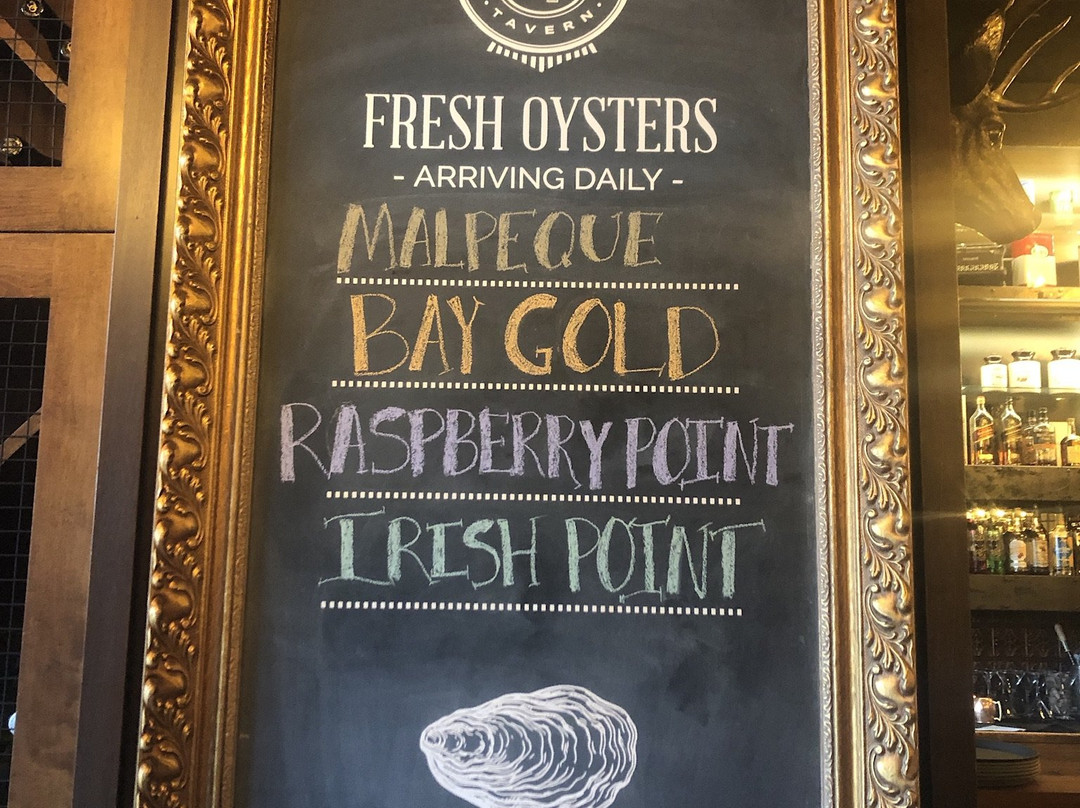 TAVERN
FRESH OYSTERS
- ARRIVING DAILY -
MALPEQUE
BAY GOLD
RASPBERRY POINT
IRISH POINT